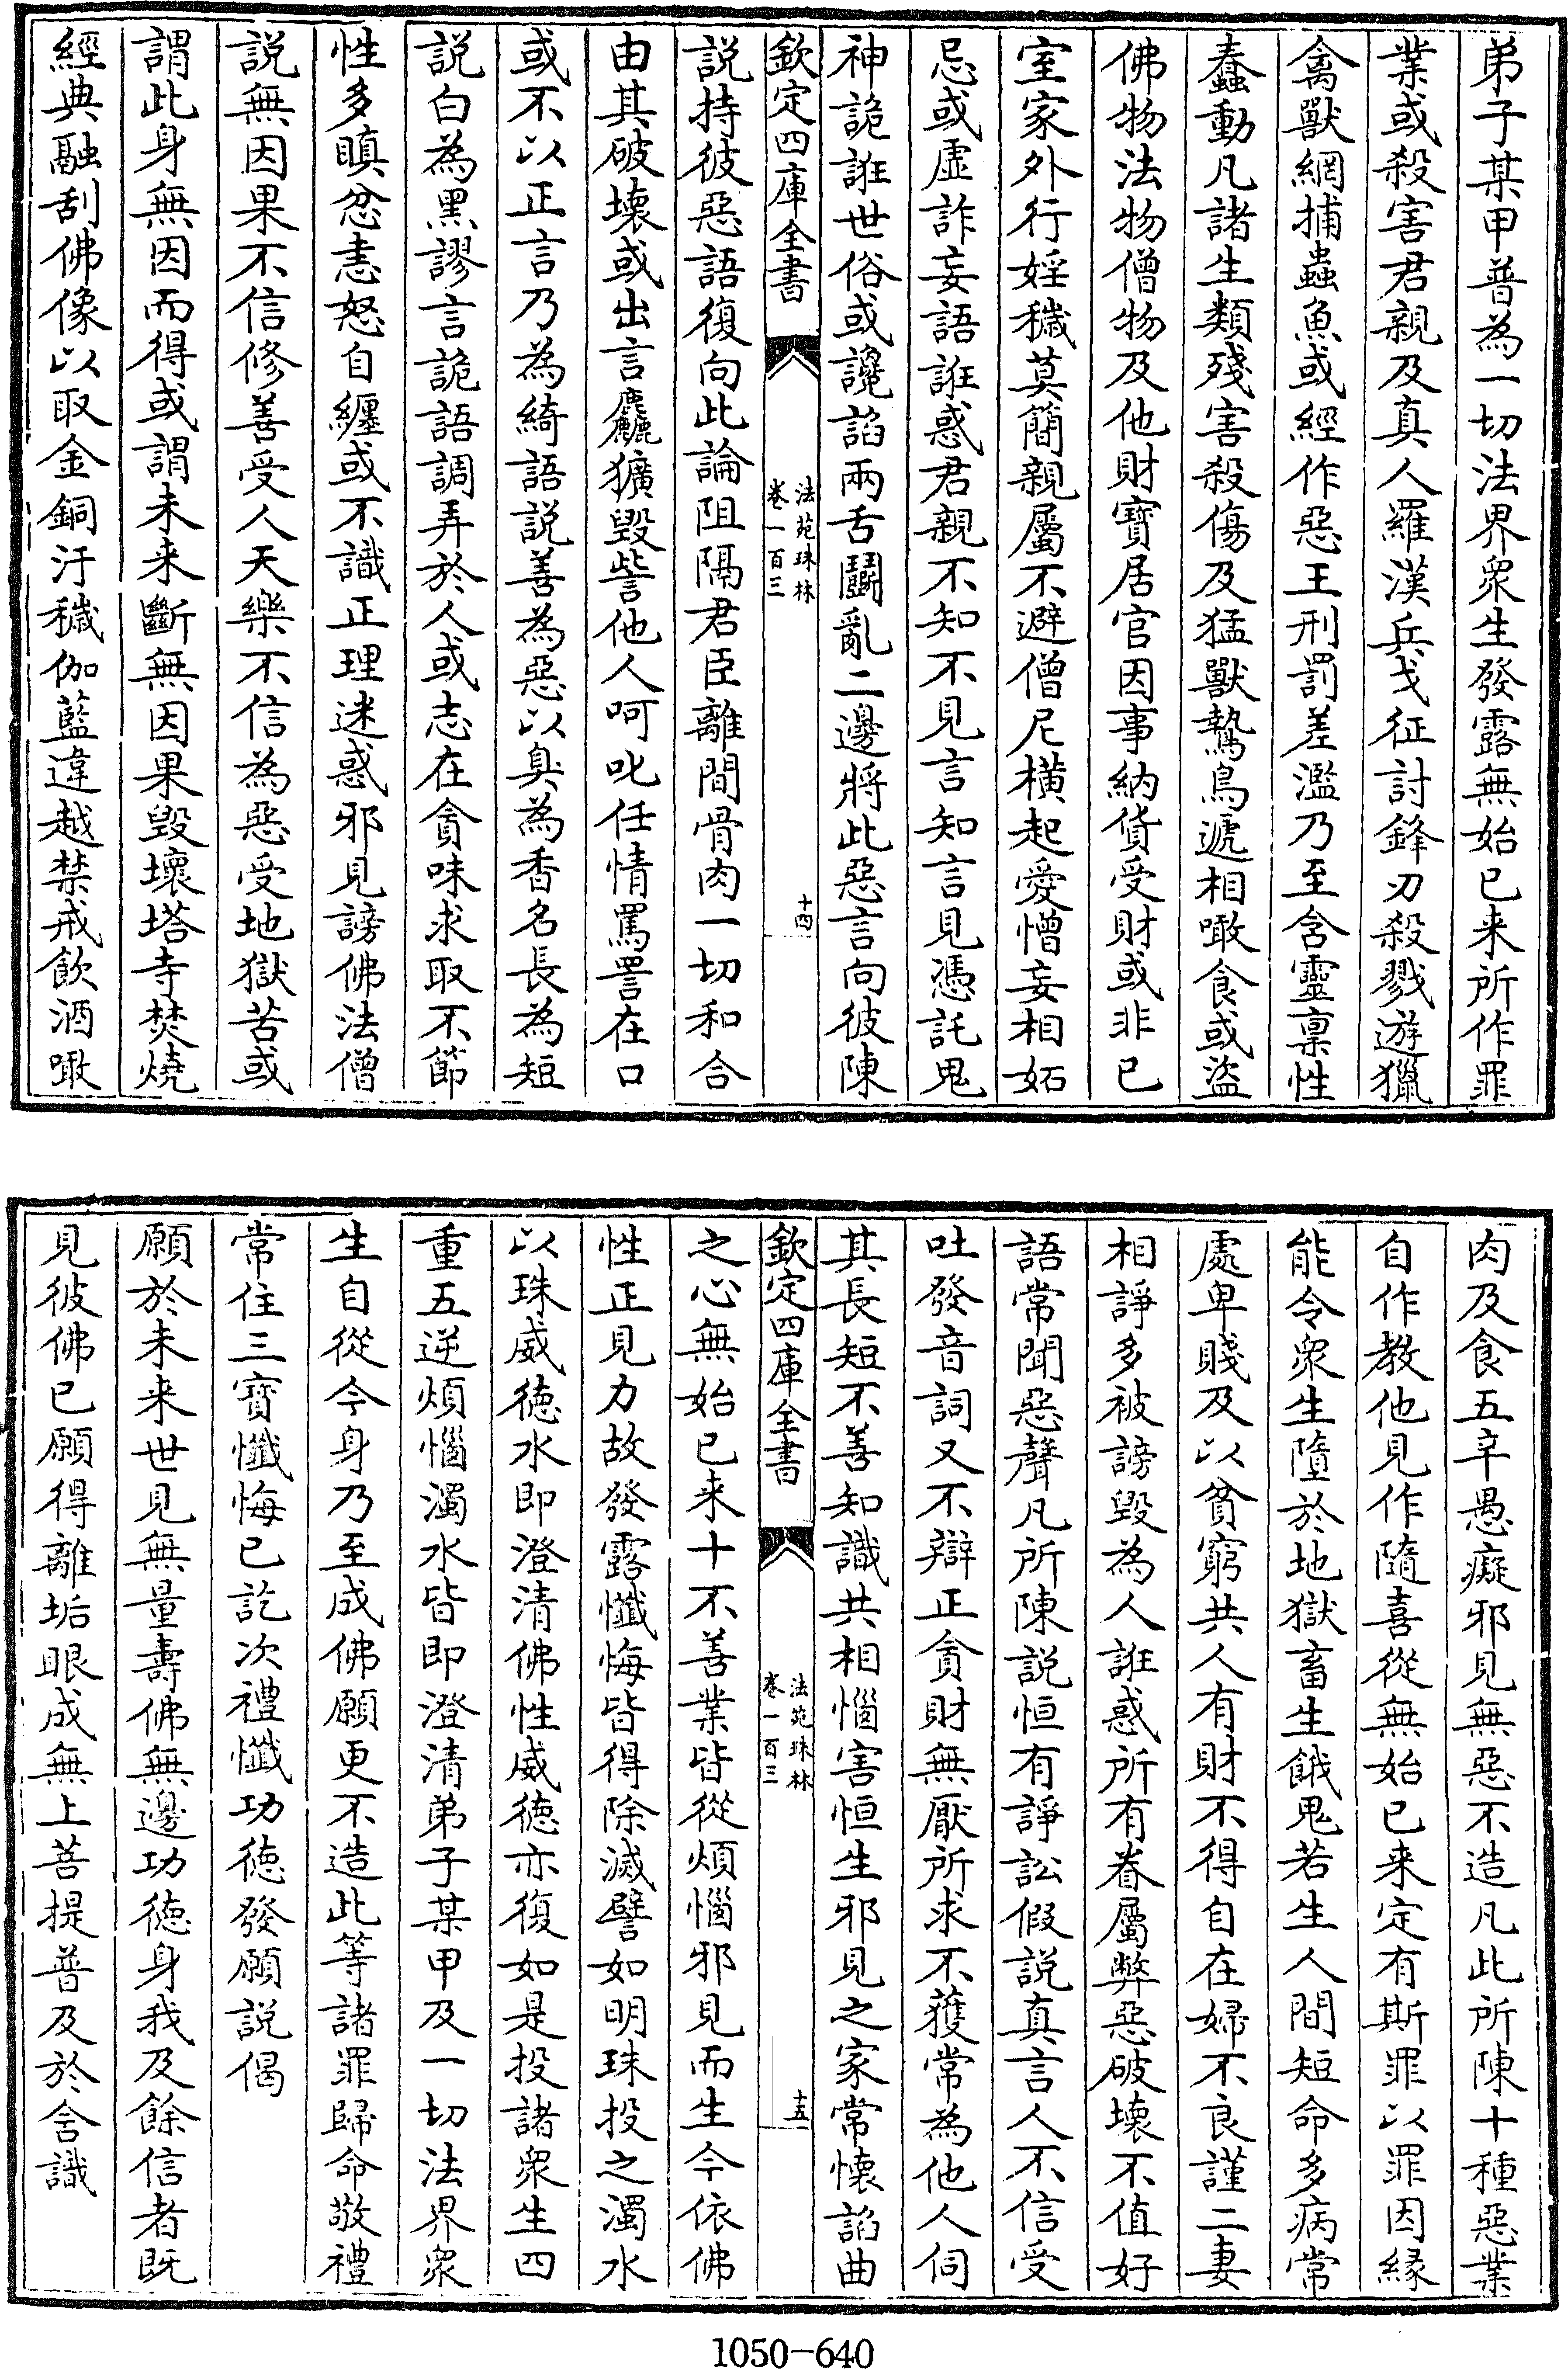 弟子某甲普為一切法界衆生發露無始已来所作罪
業或殺害君親及真人羅漢兵戈征討鋒刃殺戮遊獵
禽獸網捕蟲魚或經作惡王刑罰差濫乃至含靈稟性
蠢動凡諸生類殘害殺傷及猛獸鷙鳥遞相噉食或盜
佛物法物僧物及他財寶居官因事納貨受財或非已
室家外行婬穢莫簡親屬不避僧尼橫起愛憎妄相妬
忌或虛詐妄語誑惑君親不知不見言知言見憑託鬼
神詭誑世俗或讒諂兩舌鬭亂二邊將此惡言向彼陳
欽定四庫全書
法苑珠林
卷一百三
十四
説持彼惡語復向此論阻隔君臣離間骨肉一切和合
由其破壞或出言麤獷毀訾他人呵叱任情罵詈在口
或不以正言乃為綺語説善為惡以臭為香名長為短
説白為黑謬言詭語調弄於人或志在貪味求取不節
性多瞋忿恚怒自纏或不識正理迷惑邪見謗佛法僧
説無因果不信修善受人天樂不信為惡受地獄苦或
謂此身無因而得或謂未来斷無因果毀壞塔寺焚燒
經典融刮佛像以取金銅汙穢伽藍違越禁戒飲酒噉
肉及食五辛愚癡邪見無惡不造凡此所陳十種惡業
自作教他見作隨喜從無始已来定有斯罪以罪因緣
能令衆生墮於地獄畜生餓鬼若生人間短命多病常
處卑賤及以貧窮共人有財不得自在婦不良謹二妻
相諍多被謗毀為人誑惑所有眷屬弊惡破壞不值好
語常聞惡聲凡所陳説恒有諍訟假説真言人不信受
吐發音詞又不辯正貪財無厭所求不獲常為他人伺
其長短不善知識共相惱害恒生邪見之家常懷諂曲
欽定四庫全書
法苑珠林
卷一百三
十五
之心無始已来十不善業皆從煩惱邪見而生今依佛
性正見力故發露懺悔皆得除滅譬如明珠投之濁水
以珠威徳水即澄清佛性威徳亦復如是投諸衆生四
重五逆煩惱濁水皆即澄清弟子某甲及一切法界衆
生自從今身乃至成佛願更不造此等諸罪歸命敬禮
常住三寶懺悔已訖次禮懺功徳發願説偈
願於未来世見無量壽佛無邊功徳身我及餘信者既
見彼佛已願得離垢眼成無上菩提普及於含識
1050-640